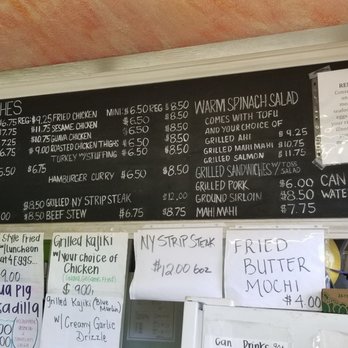 HES
$6.75 REG $9.25 FRIED CHICKEN MINI: $6.50 REG $8.50
7.75 $11.75 SESAME CHICKEN $6.50 $8.50
$6.75 $10.75 GUAVA CHICKEN $6.50 $8.50
$6.75 $9.00 ROASTED CHICKEN THIGHS $6.50 $8.50
TURKEY w/ STUFFING $6.50 $8.50
6.50 $6.75
HAMBURGER CURRY $6.50 $8.50
GRILLED NY STRIP STEAK $12.00
$8.50 BEEF STEW $6.75 $8.75
WARM SPINACH SALAD
COMES WITH TOFU
AND YOUR CHOICE OF
GRILLED AHI $9.25
GRILLED MAHI MAHI $10.75
GRILLED SALMON $11.75
GRILLED SANDWICHES w/ TOSS SALAD
GRILLED PORK $6.00
GROUND SIRLOIN $8.50
MAHI MAHI $7.75
CAN
WATE
Style Fried
w/Luncheon
eat 4 Eggs
9.00
Grilled Kajiki
w/ Your choice of
Chicken
$9.00
Grilled Kajiki (Blue Marlin)
w/ Creamy Garlic
Drizzle
NY STRIP STEAK
$12.00 6oz
FRIED
BUTTER
MOCHI
$4.00
Can Drinks